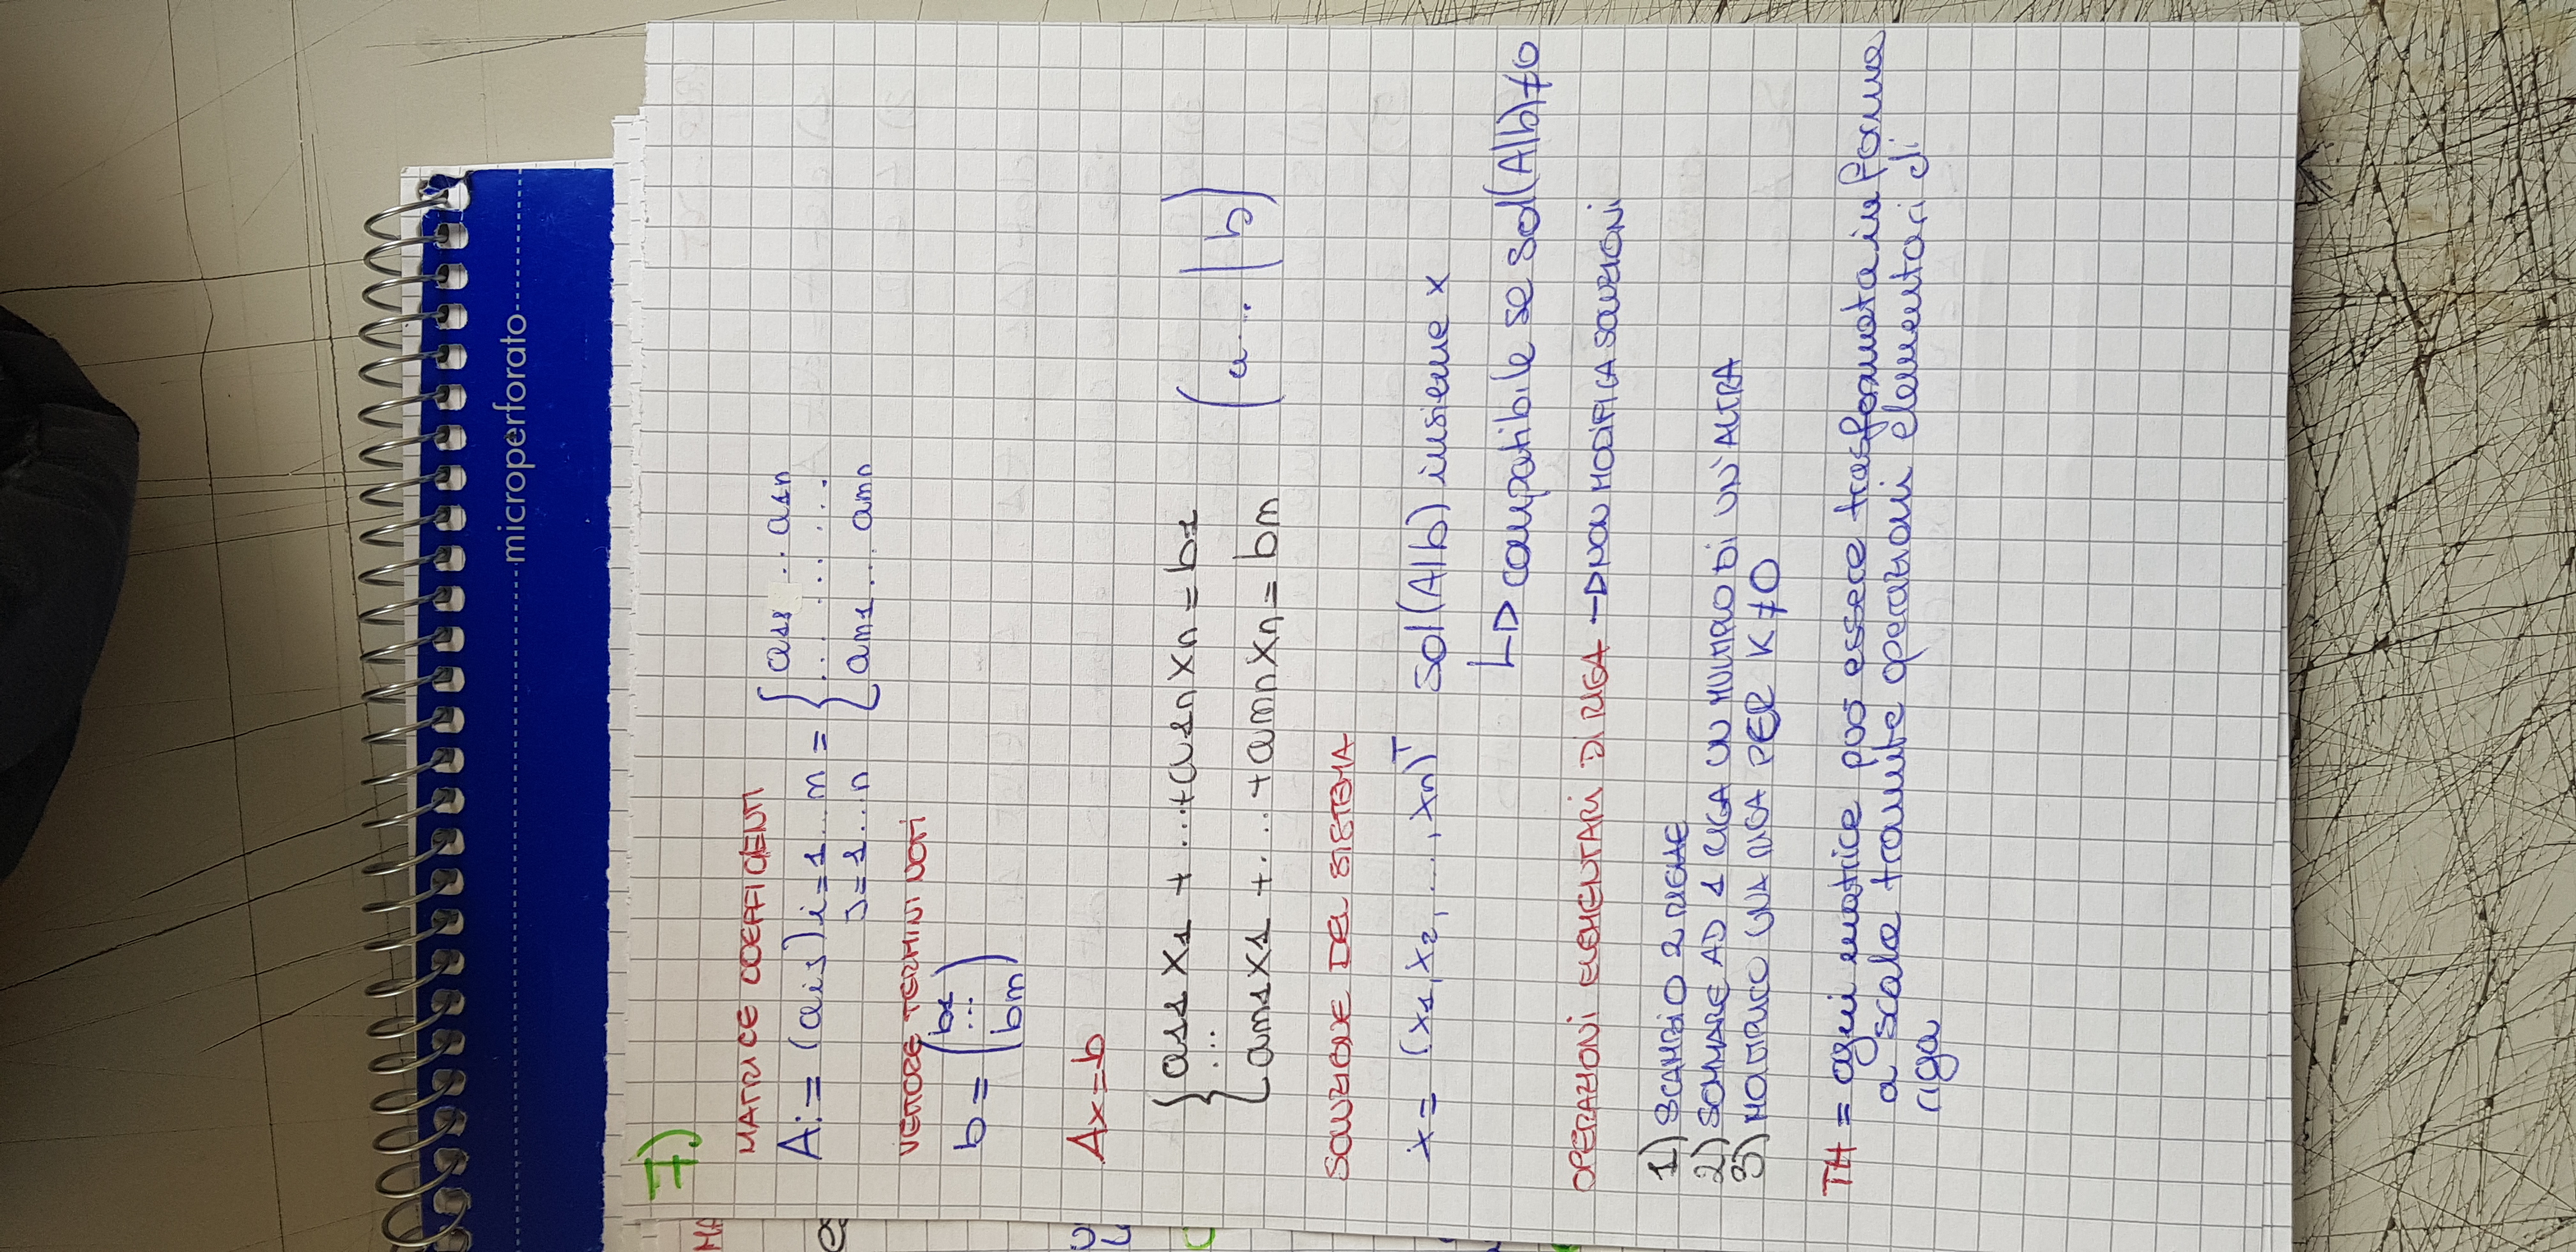 microperforato
7)
MATRICE COEFFICIENTI
A:= (aij) i=1...m = { a11 ... a1n
... ... ...
J=1...n am1... amn
VETTORE TERMINI NOTI
b = ( b1
...
bm )
Ax=b
{ a11 x1 + ...+a1n xn = b1
...
am1x1 +.... +amn xn = bm
(a... | b)
SOLUZIONE DEL SISTEMA
x= (x1,x2, ..., xn)T sol(A|b) insieme x
compatibile se sol(A|b)≠0
OPERAZIONI ELEMENTARI DI RIGA → NON MODIFICA SOLUZIONI
1) SCAMBIO 2 RIGHE
2) SOMMARE AD 1 RIGA UN MULTIPLO DI UN'ALTRA
3) MOLTIPLICO UNA RIGA PER K≠0
TH = ogni matrice può essere trasformata in forma
a scala tramite operazioni elementari di
riga